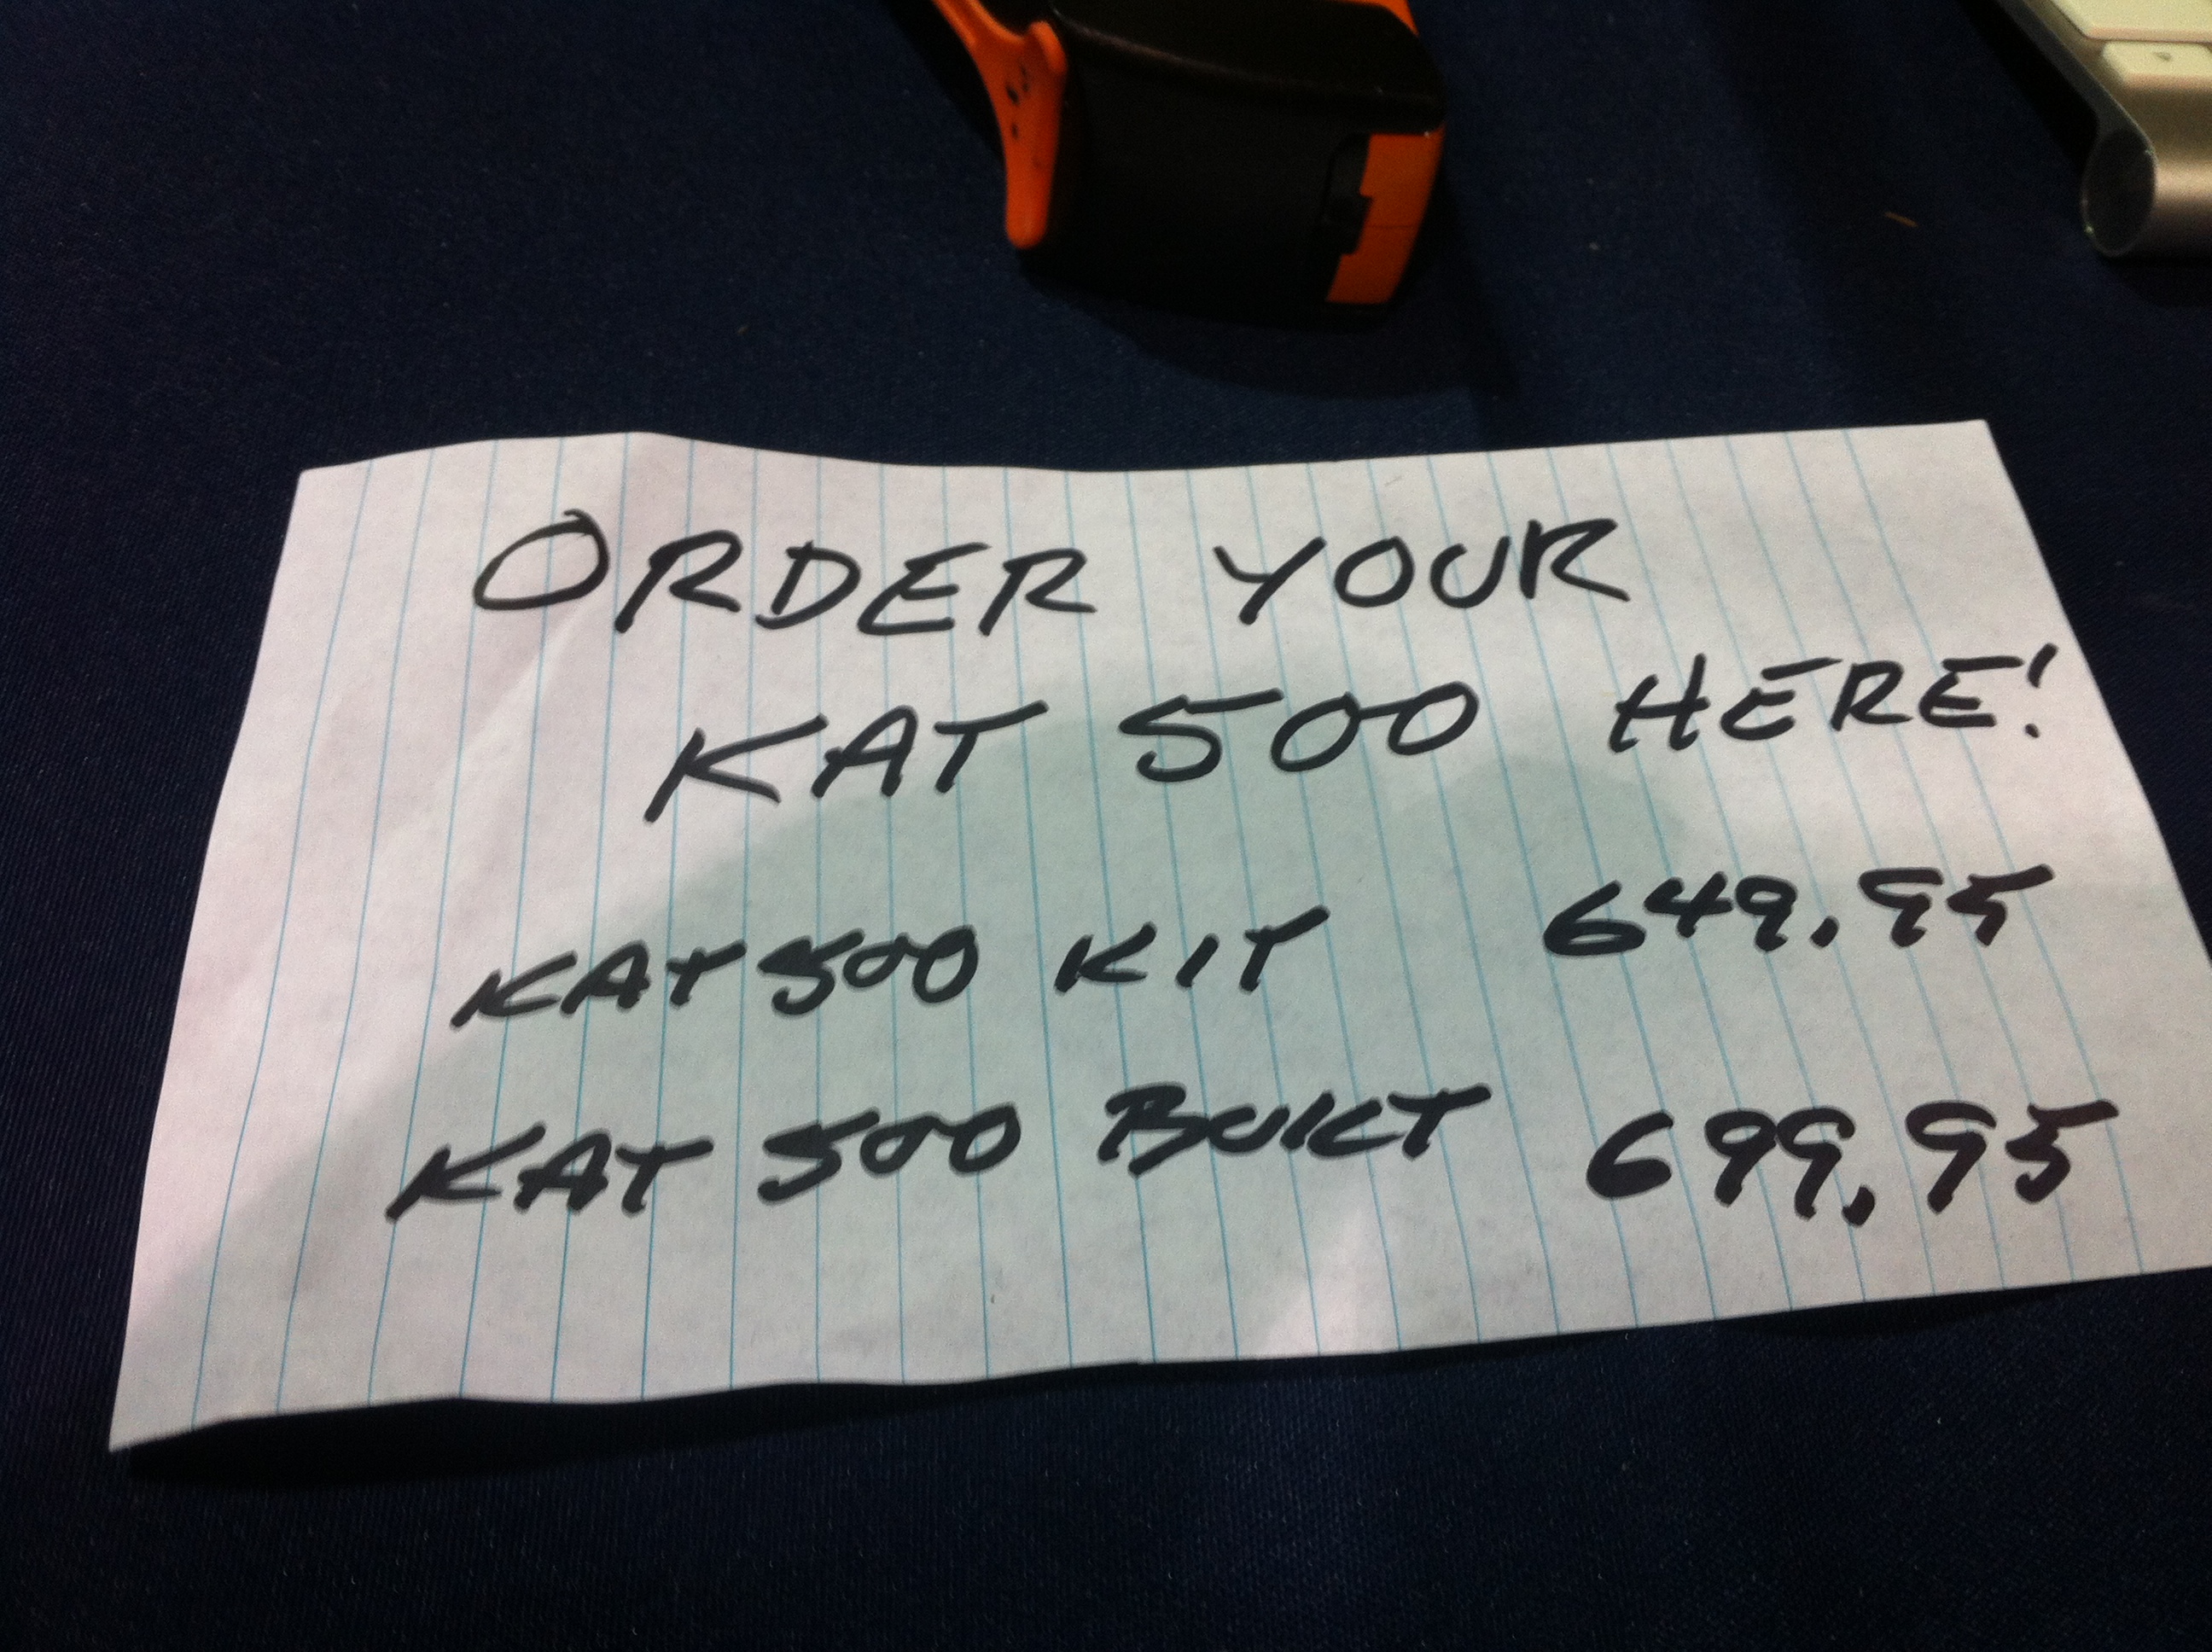 ORDER YOUR
KAT 500 HERE!
KAT500 KIT 649.95
KAT 500 BUILT 699.95